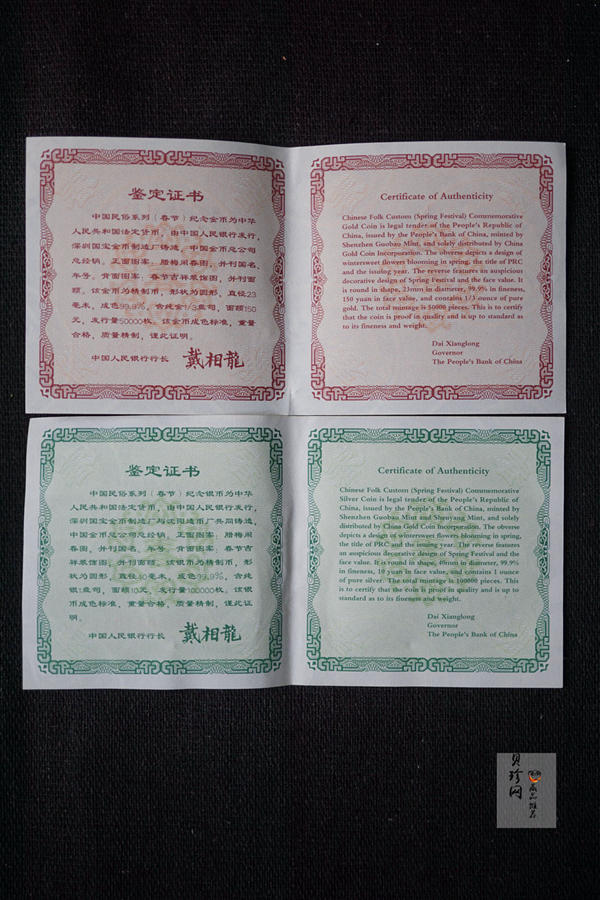 鉴定证书
中国民俗系列（春节）纪念金币为中华
人民共和国法定货币，由中国人民银行发行，
深圳国宝金币制造厂铸造，中国金币总公司
总经销。正面图案：腊梅闹春图，并刊国名、
年号。背面图案：春节吉祥装饰图，并刊面
额。该金币为精制币，形状为圆形，直径23
毫米，成色99.9%，含纯金1/3盎司，面额150
元，发行量50000枚。该金币成色标准，重量
合格，质量精制，谨此证明。
中国人民银行行长 戴相龍
Certificate of Authenticity
Chinese Folk Custom (Spring Festival) Commemorative
Gold Coin is legal tender of the People's Republic of
China, issued by the People's Bank of China, minted by
Shenzhen Guobao Mint, and solely distributed by China
Gold Coin Incorporation. The obverse depicts a design of
wintersweet flowers blooming in spring, the title of PRC
and the issuing year. The reverse features an auspicious
decorative design of Spring Festival and the face value. It
is round in shape, 23mm in diameter, 99.9% in fineness,
150 yuan in face value, and contains 1/3 ounce of pure
gold. The total mintage is 50000 pieces. This is to certify
that the coin is proof in quality and is up to standard as
to its fineness and weight.
Dai Xianglong
Governor
The People's Bank of China
鉴定证书
中国民俗系列（春节）纪念银币为中华
人民共和国法定货币，由中国人民银行发行，
深圳国宝金币制造厂与沈阳造币厂共同铸造，
中国金币总公司总经销。正面图案：腊梅闹
春图，并刊国名、年号。背面图案：春节吉
祥装饰图，并刊面额。该银币为精制币，形
状为圆形，直径40毫米，成色99.9%，含纯
银1盎司，面额10元，发行量100000枚。该银
币成色标准，重量合格，质量精制，谨此证
明。
中国人民银行行长 戴相龍
Certificate of Authenticity
Chinese Folk Custom (Spring Festival) Commemorative
Silver Coin is legal tender of the People's Republic of
China, issued by the People's Bank of China, minted by
Shenzhen Guobao Mint and Shenyang Mint, and solely
distributed by China Gold Coin Incorporation. The obverse
depicts a design of wintersweet flowers blooming in spring,
the title of PRC and the issuing year. The reverse features
an auspicious decorative design of Spring Festival and the
face value. It is round in shape, 40mm in diameter, 99.9%
in fineness, 10 yuan in face value, and contains 1 ounce
of pure silver. The total mintage is 100000 pieces. This is
to certify that the coin is proof in quality and is up to
standard as to its fineness and weight.
Dai Xianglong
Governor
The People's Bank of China
贝珍网